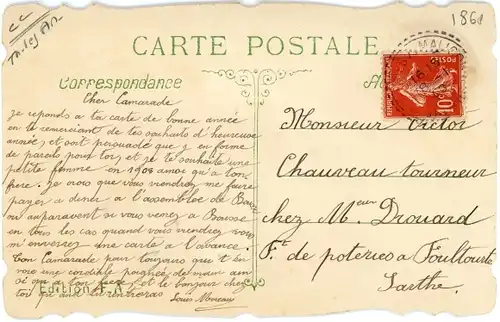 1860
CARTE POSTALE
Correspondance
Cher Camarade
Je reponds a ta carte de bonne année
en te remerciant de tes souhaits d'heureuse
année, et sois persuadé que j'en forme
de pareils pour toi, et je te souhaite une
petite femme en 1908 ainsi qu'a ton
frere. Je crois que vous viendrez me faire
payer a diner a l'assemblée de
ou auparavent si vous venez a
en tous les cas quand vous viendrez vous
m'enverrez une carte a l'avance.
Ton Camarade pour toujours que t'en
voie une cordiale poignée de main ainsi
si qu'a ton frere et le bonjour chez
toi quand tu rentreras
Louis
Edition F. A.
Monsieur Victor
Chauveau tourneur
chez Mr Drouard
Ft de poteries a Foultourte
Sarthe.
REPUBLIQUE FRANÇAISE
POSTES
10c